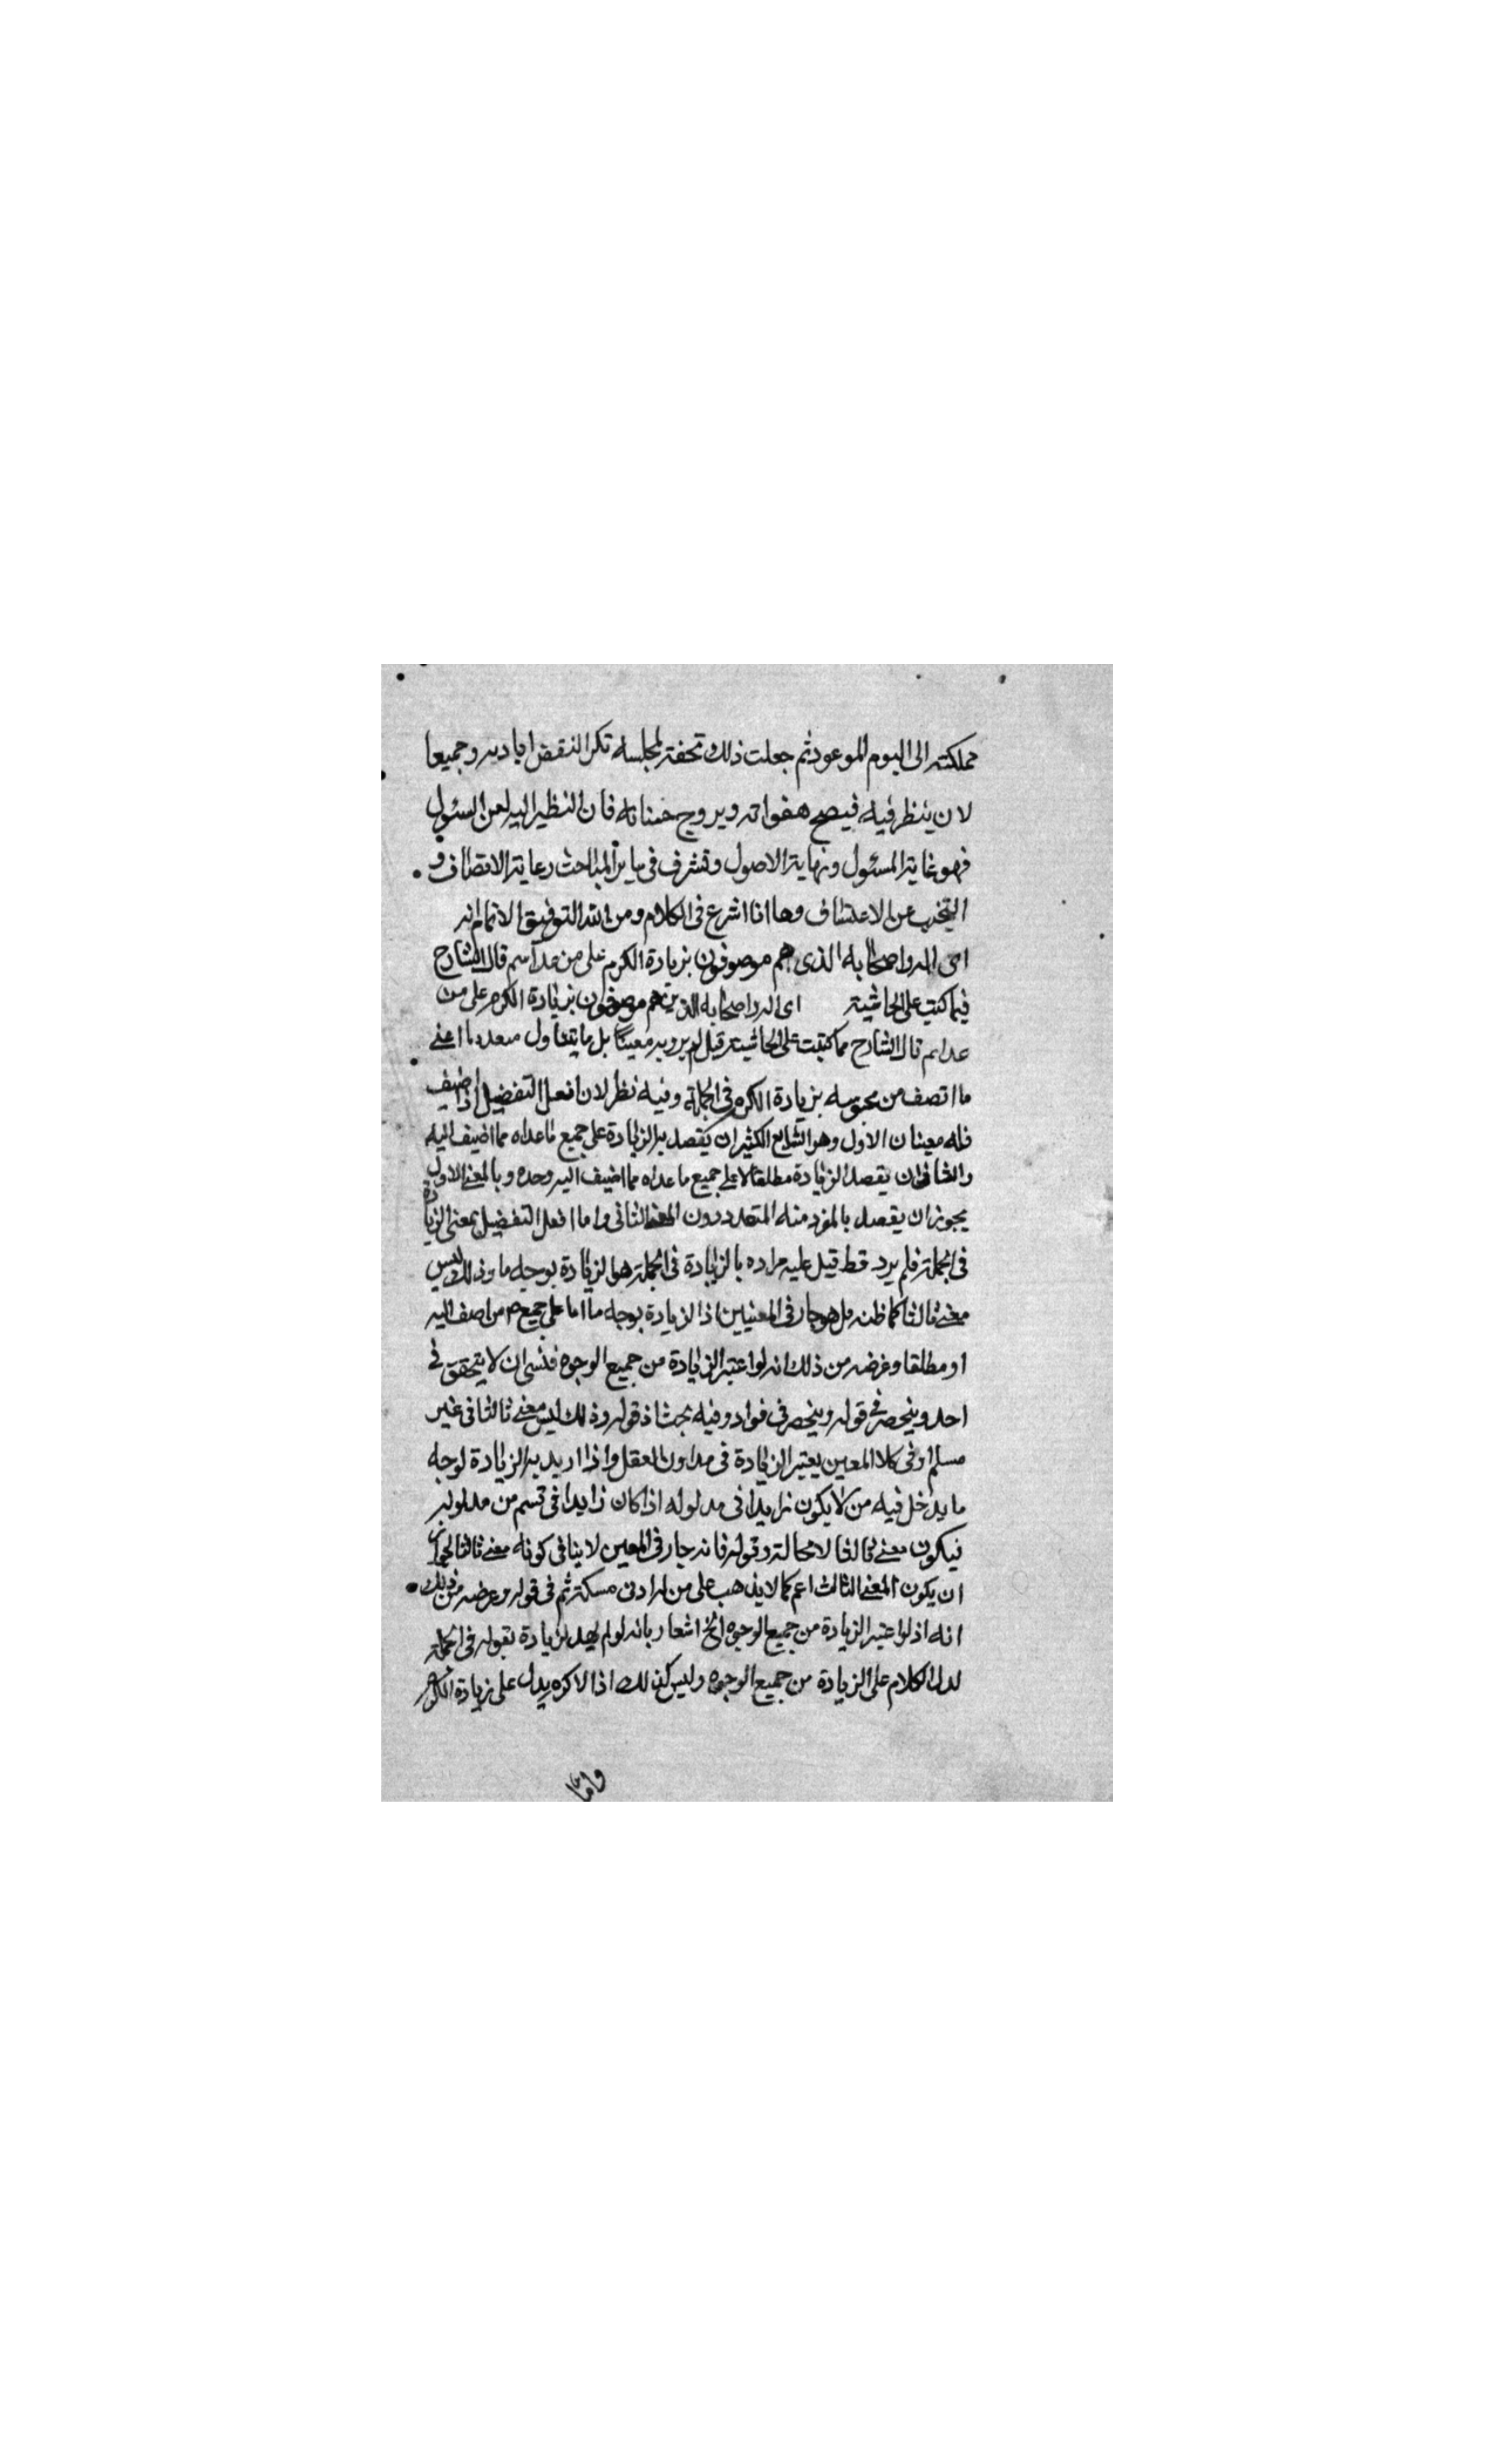 مملكته الى اليوم الموعود ثم جعلت ذلك تحفة لمجلسه وجميعا
لان ينظر فيه فيصح هفواته ويروج فان النظر اليه لعن السئول
فهو غاية المسئول ونهاية الاصول وتشرف فى ساير المباحث رعاية الانصاف و
التجنب عن الاعتساف وها انا اشرع فى الكلام ومن الله التوفيق الاتمام انه
اى اله واصحابه الذى هم موصوفون بزيادة الكرم على من عداهم قال الشارح
فيما كتب على الحاشية اى اله واصحابه الذين هم موصوفون بزيادة الكرم على من
عداهم قال الشارح مما كتبت على الحاشية قيل لم يرد به معينا بل ما يتناول متعددا اعنى
ما اتصف من بزيادة الكرم فى الجملة وفيه نظر لان افعل التفضيل اذا اضيف
فله معينان الاول وهو الشايع الكثير ان يقصد به الزيادة على جميع ما عداه مما اضيف اليه
والثانى ان يقصد الزيادة مطلقا لا على جميع ما عداه مما اضيف اليه وحده وبالمعنى الاول
يجوز ان يقصد بالمفرد منه المتعدد دون المعنى الثانى واما افعل التفضيل بمعنى الزيادة
فى الجملة فلم يرد قط قيل عليه مراده بالزيادة فى الجملة هو الزيادة بوجه ما وذلك ليس
معنى ثالثا كما ظنه بل هو جار فى المعنيين اذ الزيادة بوجه ما اما على جميع من اضف اليه
او مطلقا وغرضه من ذلك انه لو اعتبر الزيادة من جميع الوجوه ان لا يتحقق فى
احد وينحصر فى قوله وينحصر فى فواد وفيه بحث اذ قوله وذلك ليس معنى ثالثا فى غير
مسلم او فى كلا المعين يعتبر الزيادة فى العقل واذا اريد به الزيادة لوجه
ما يدخل فيه من لا يكون زايدا فى مدلوله اذا كان زايدا فى قسم من مدلوله
فيكون معنى ثالثا لا محالة وقوله فانه جار فى المعين لا ينافى كونه معنى ثالثا لجواز
ان يكون المعنى الثالث اعم كما لا يذهب على من له ادنى مسكة ثم فى قوله وغرضه من ذلك
انه اذ لو اعتبر الزيادة من جميع الوجوه الخ اشعار بانه لو لم يقيد الزيادة بقوله فى الجملة
لدل الكلام على الزيادة من جميع الوجوه وليس كذلك اذ الاكرم يدل على زيادة الكرم